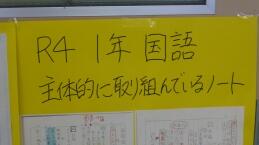 R4 1年 国語
主体的に取り組んでいるノート